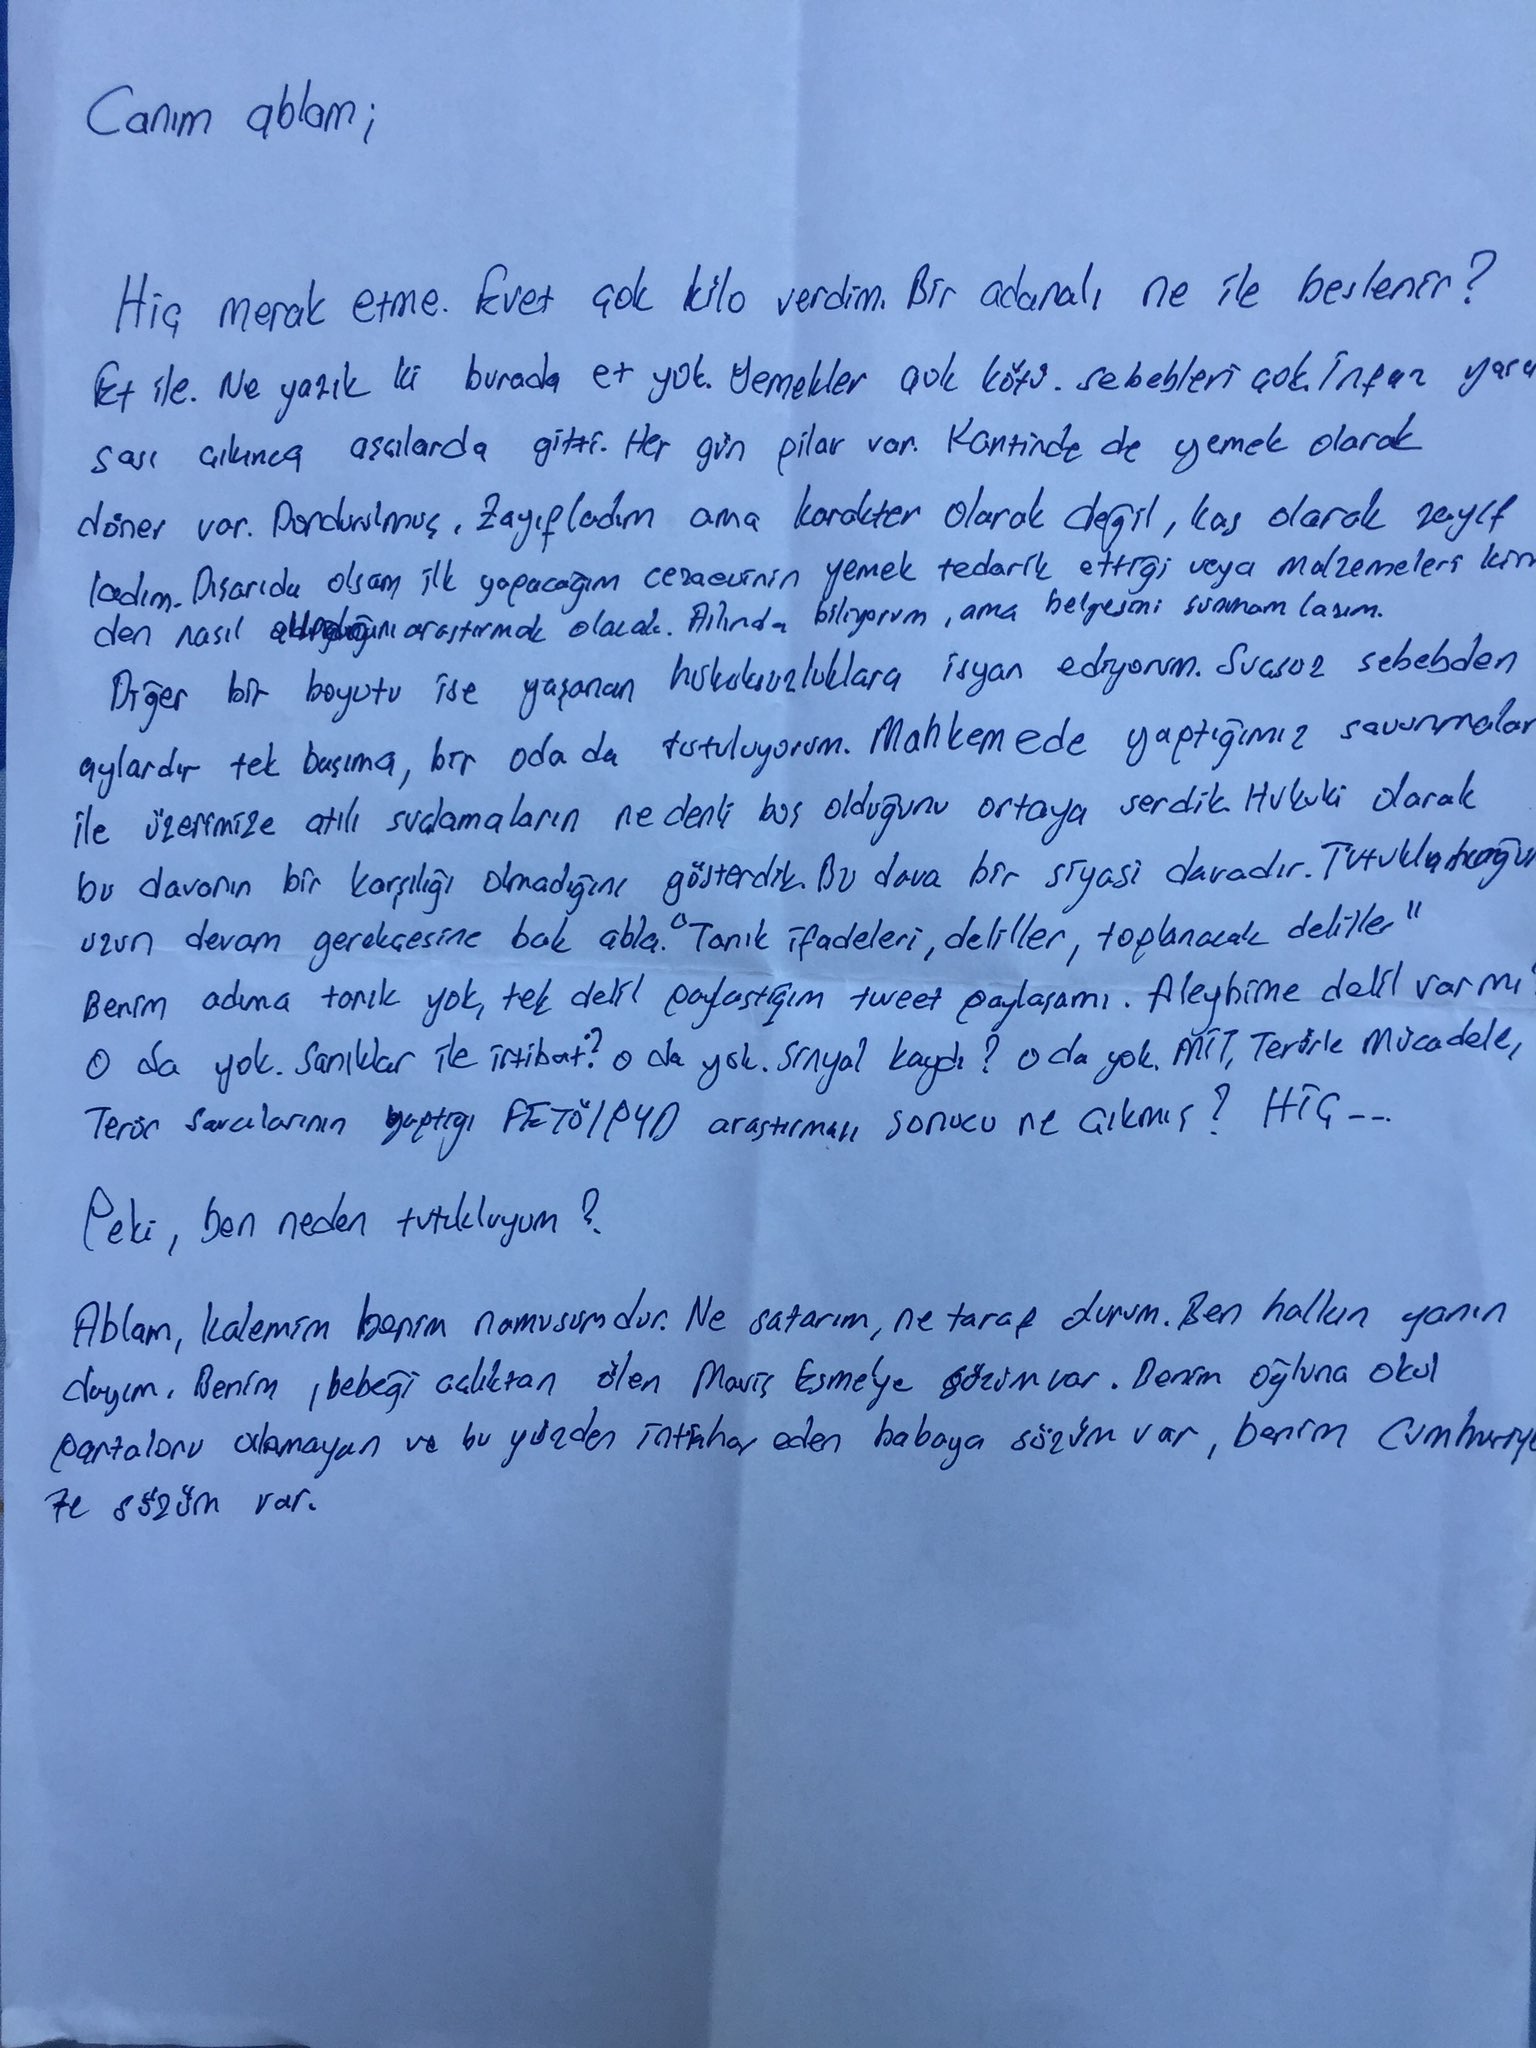 Canım ablam;
Hiç merak etme. Evet çok kilo verdim. Bir adanalı ne ile beslenir?
Et ile. Ne yazık ki burada et yok. Yemekler çok kötü. sebebleri çok. İnfaz yasa
sası çıkınca aşçılarda gitti. Her gün pilav var. Kantinde de yemek olarak
döner var. Dondurulmuş. Zayıfladım ama karakter olarak değil, kas olarak zayıf
ladım. Dışarıda olsam ilk yapacağım cezaevinin yemek tedarik ettiği veya malzemeleri kim
den nasıl araştırmak olacak. Aslında biliyorum, ama belgesini sunmam lazım.
Diğer bir boyutu ise yaşanan hukuksuzluklara isyan ediyorum. Suçsuz sebebden
aylardır tek başıma, bir oda da tutuluyorum. Mahkemede yaptığımız savunmalar
ile üzerimize atılı suçlamaların ne denli boş olduğunu ortaya serdik. Hukuki olarak
bu davanın bir karşılığı olmadığını gösterdik. Bu dava bir siyasi davadır.
uzun devam gerekçesine bak abla. "Tanık ifadeleri, deliller, toplanacak deliller"
Benim adıma tanık yok, tek delil paylaştığım tweet paylaşımı. Aleyhime delil var mı?
O da yok. Sanıklar ile irtibat? O da yok. Sinyal kaydı? O da yok. MİT, Terörle Mücadele,
Terör Savcılarının yaptığı FETÖ/PYD araştırması sonucu ne çıkmış? HİÇ ---
Peki, ben neden tutukluyum?
Ablam, kalemim benim namusumdur. Ne satarım, ne taraf olurum. Ben halkın yanın
dayım. Benim, bebeği açlıktan ölen Maviş Esme'ye sözüm var. Benim oğluna okul
pantalonu alamayan ve bu yüzden intihar eden babaya sözüm var, benim Cumhuriye
te sözüm var.